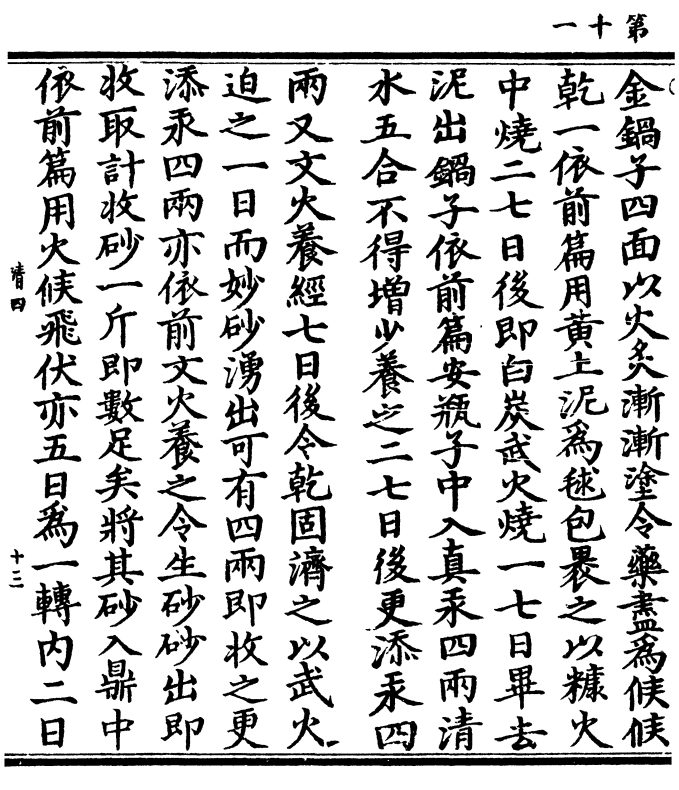 第十一
金鍋子四面以火炙漸漸塗令藥盡為候候
乾一依前篇用黄土泥為毬包褁之以糠火
中燒二七日後即白炭武火燒一七日畢去
泥出鍋子依前篇安瓶子中入真汞四兩清
水五合不得增少養之二七日後更添汞四
兩又文火養經七日後令乾固濟之以武火
迫之一日而妙砂湧出可有四兩即收之更
添汞四兩亦依前文火養之令生砂砂出即
收取計收砂一斤即數足矣將其砂入鼎中
依前篇用火候飛伏亦五日為一轉内二日
清四
十二